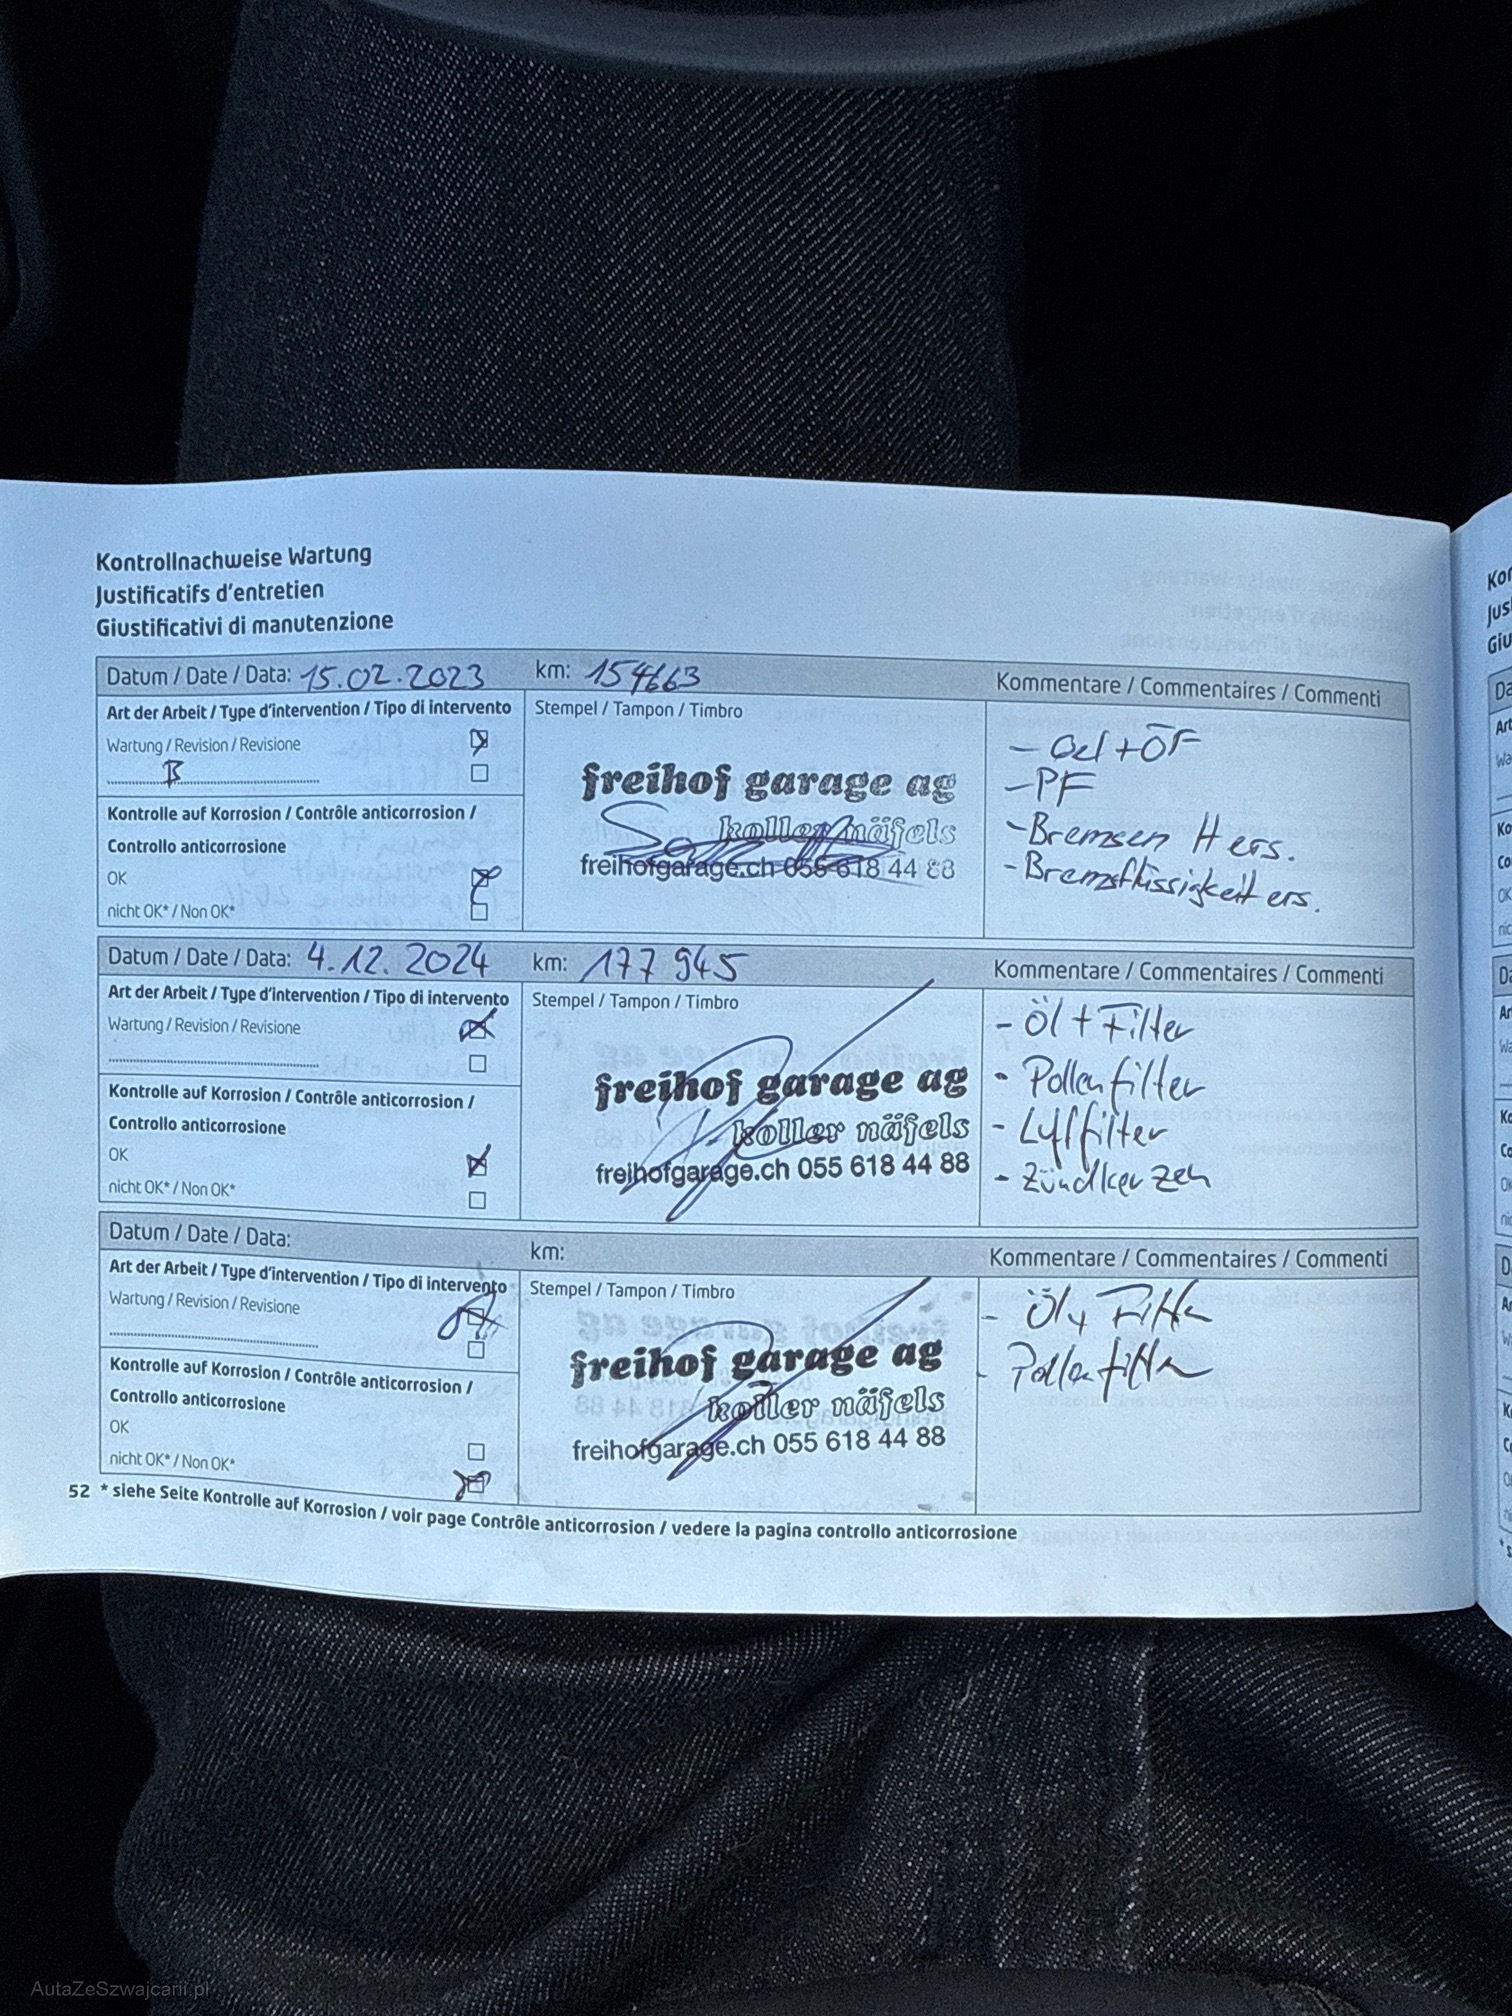 Kontrollnachweise Wartung
Justificatifs d'entretien
Giustificativi di manutenzione
Datum / Date / Data: 15.02.2023 km: 154663 Kommentare / Commentaires / Commenti
Art der Arbeit / Type d'intervention / Tipo di intervento
Stempel / Tampon / Timbro
Wartung / Revision / Revisione
B
Kontrolle auf Korrosion / Contrôle anticorrosion /
Controllo anticorrosione
OK
nicht OK* / Non OK*
freihof garage ag
koller näfels
freihofgarage.ch 055 618 44 88
- Oel + ÖF
- PF
- Bremsen H ers.
- Bremsflüssigkeit ers.
Datum / Date / Data: 4.12.2024 km: 177 945 Kommentare / Commentaires / Commenti
Art der Arbeit / Type d'intervention / Tipo di intervento
Stempel / Tampon / Timbro
Wartung / Revision / Revisione
Kontrolle auf Korrosion / Contrôle anticorrosion /
Controllo anticorrosione
OK
nicht OK* / Non OK*
freihof garage ag
koller näfels
freihofgarage.ch 055 618 44 88
- Öl + Filter
- Pollenfilter
- Luftfilter
- Zündkerzen
Datum / Date / Data: km: Kommentare / Commentaires / Commenti
Art der Arbeit / Type d'intervention / Tipo di intervento
Stempel / Tampon / Timbro
Wartung / Revision / Revisione
Kontrolle auf Korrosion / Contrôle anticorrosion /
Controllo anticorrosione
OK
nicht OK* / Non OK*
freihof garage ag
koller näfels
freihofgarage.ch 055 618 44 88
- Öl + Filter
- Pollenfilter
52 * siehe Seite Kontrolle auf Korrosion / voir page Contrôle anticorrosion / vedere la pagina controllo anticorrosione
AutaZeSzwajcarii.pl